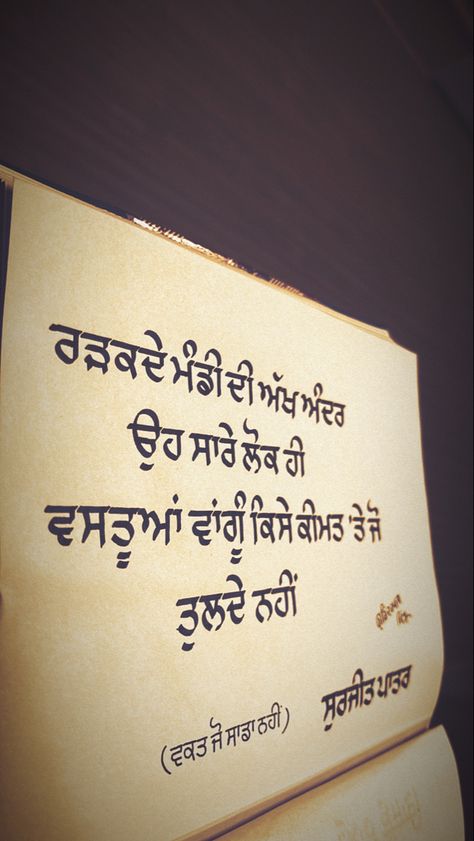 ਰੜਕਦੇ ਮੰਡੀ ਦੀ ਅੱਖ ਅੰਦਰ
ਉਹ ਸਾਰੇ ਲੋਕ ਹੀ
ਵਸਤੂਆਂ ਵਾਂਗੂੰ ਕਿਸੇ ਕੀਮਤ 'ਤੇ ਜੋ
ਤੁਲਦੇ ਨਹੀਂ
ਸੁਰਜੀਤ ਪਾਤਰ
(ਵਕਤ ਜੋ ਸਾਡਾ ਨਹੀਂ)